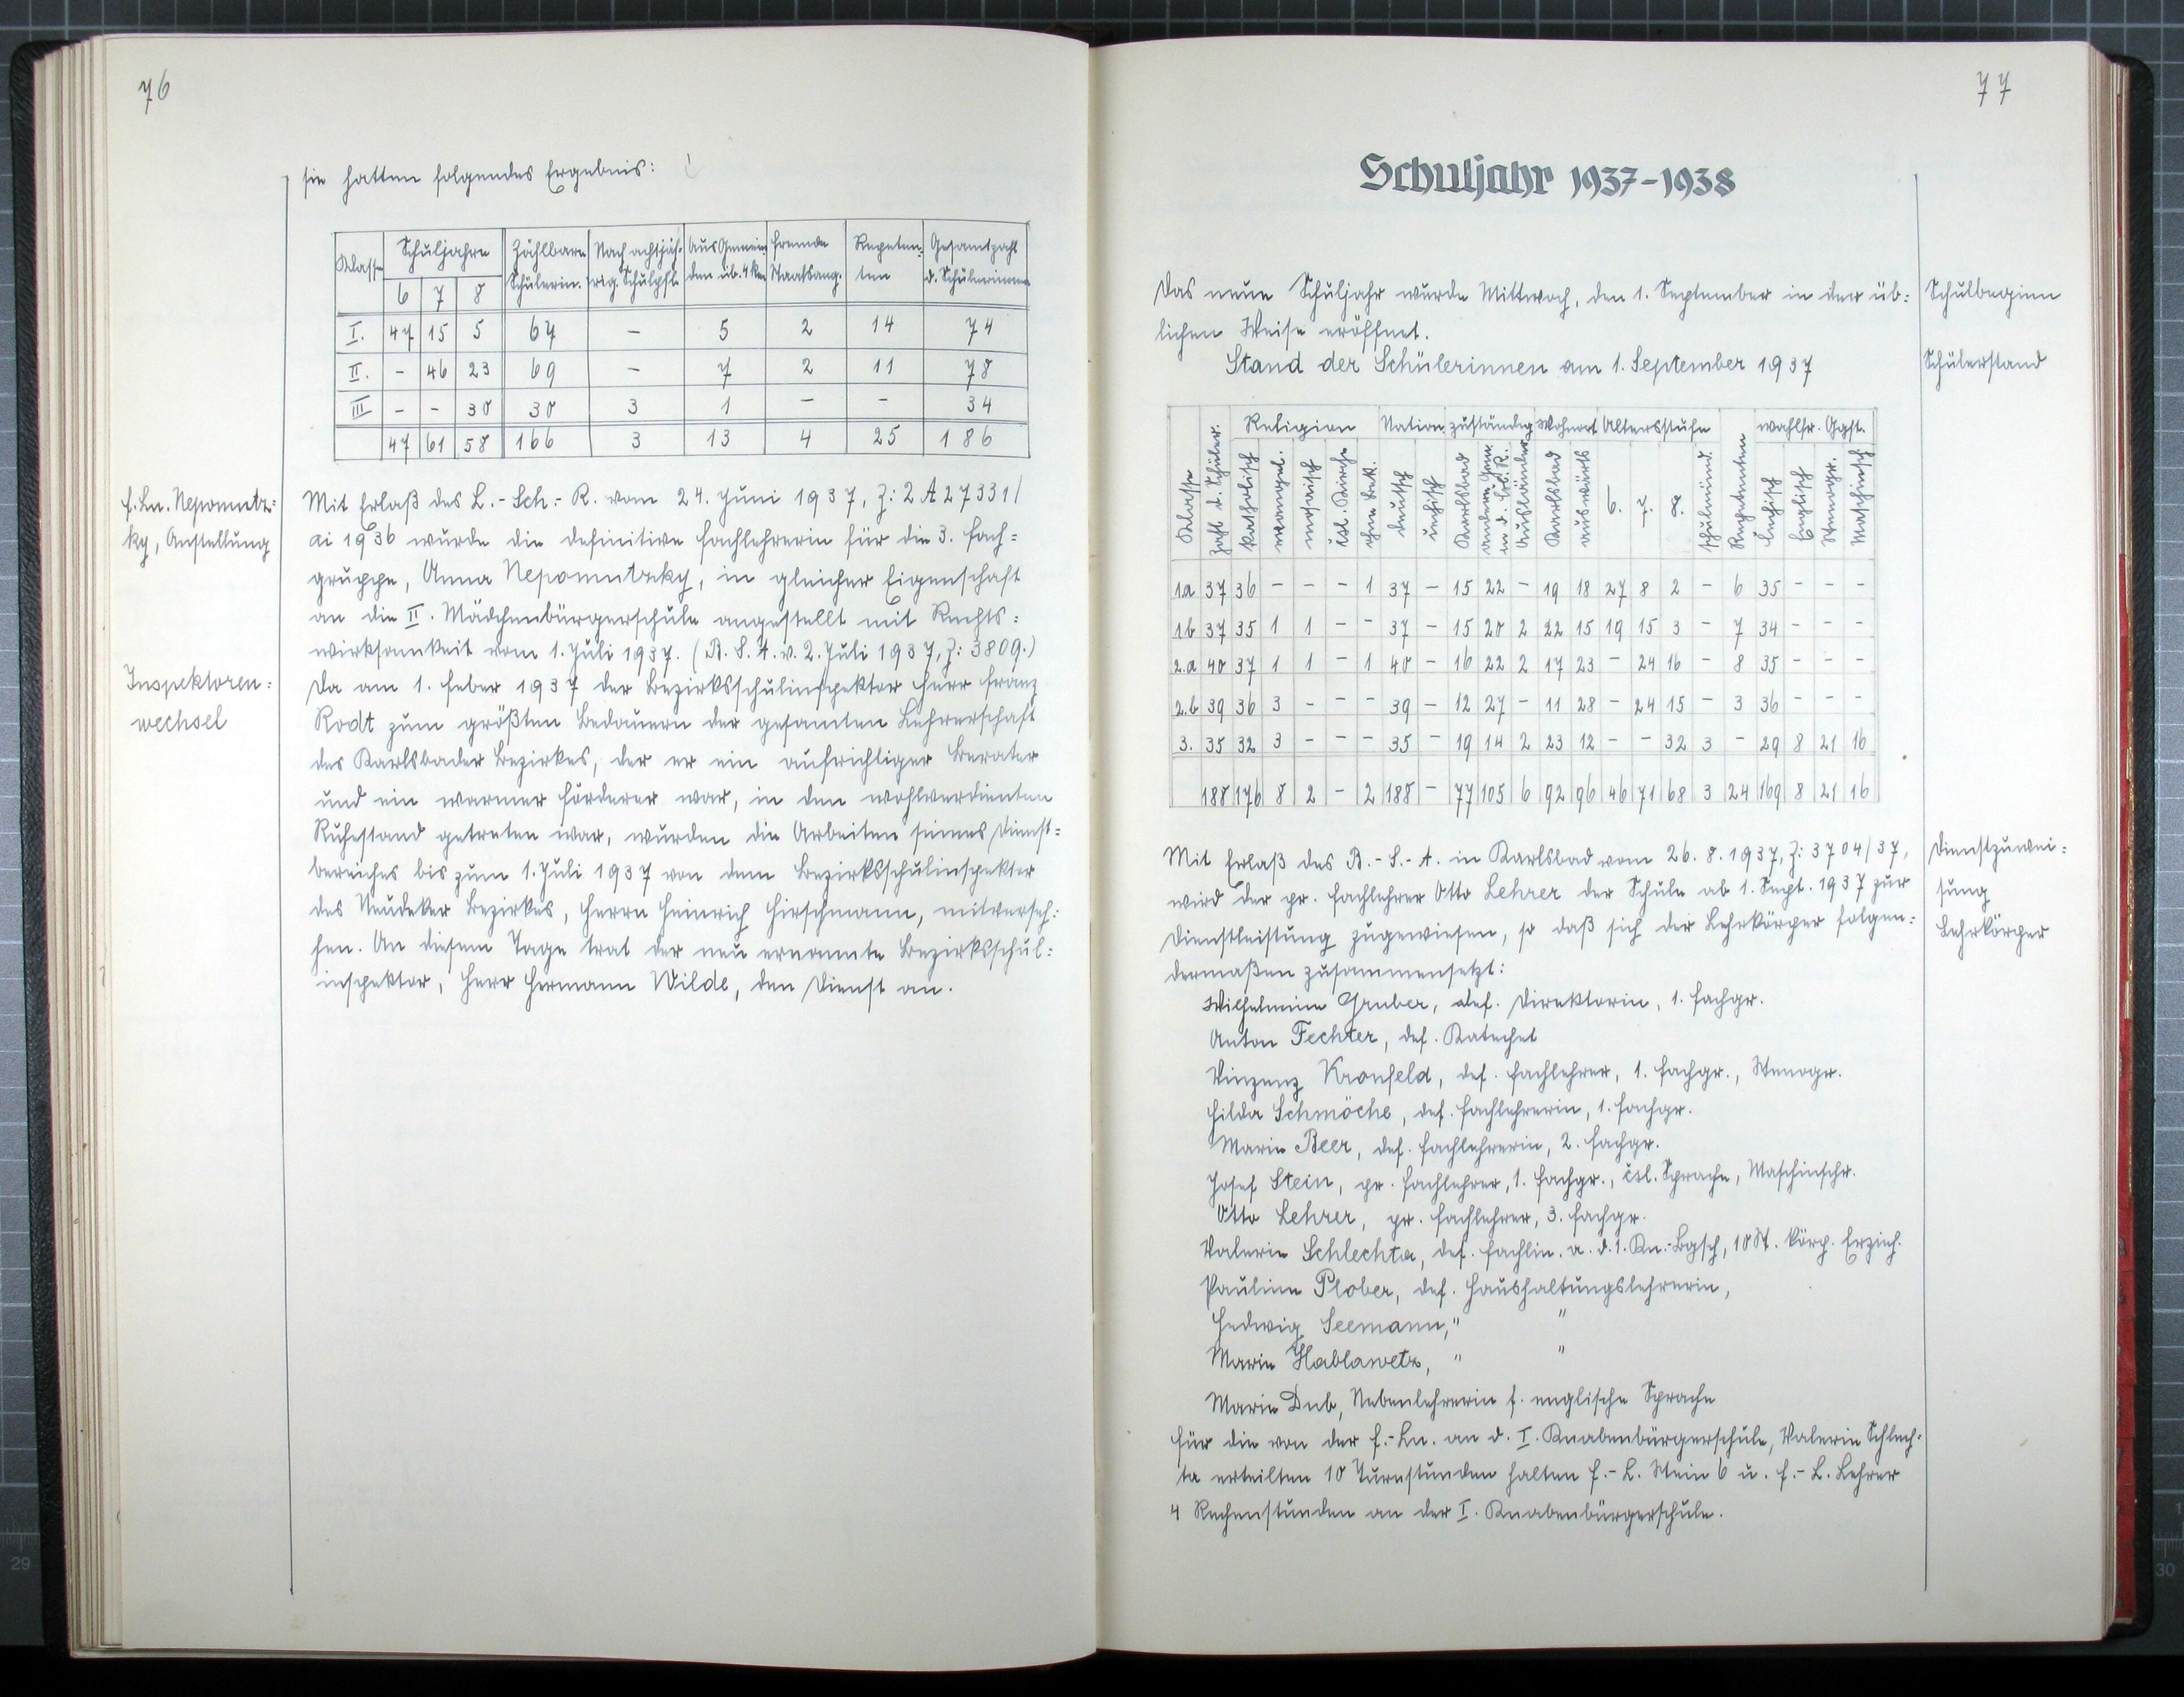 76
sie hatten folgendes Ergebnis:
Klasse | Schuljahre | Zählbare Schülerin. | Nach achtjäh=rig. Schulpfl. | Aus Gemein=den üb. 4 km | Fremde Staatsang. | Repeten=ten | Gesamtzahl d. Schülerinnen
6 | 7 | 8
I. | 47 | 15 | 5 | 67 | - | 5 | 2 | 14 | 74
II. | - | 46 | 23 | 69 | - | 7 | 2 | 11 | 78
III | - | - | 30 | 30 | 3 | 1 | - | - | 34
47 | 61 | 58 | 166 | 3 | 13 | 4 | 25 | 186
F. Ln. Nepomutz=
ky, Anstellung
Mit Erlaß des L.-Sch.-R. vom 24. Juni 1937, Z: 2 A 27331/
ai 1936 wurde die definitive Fachlehrerin für die 3. Fach=
gruppe, Anna Nepomutzky, in gleicher Eigenschaft
an die II. Mädchenbürgerschule angestellt mit Rechts=
wirksamkeit vom 1. Juli 1937. (B. S. A. v. 2. Juli 1937, Z: 3809.)
Inspektoren=
wechsel
Da am 1. Feber 1937 der Bezirksschulinspektor Herr Franz
Rodt zum größten Bedauern der gesamten Lehrerschaft
des Karlsbader Bezirkes, der er ein aufrichtiger Berater
und ein warmer Förderer war, in den wohlverdienten
Ruhestand getreten war, wurden die Arbeiten seines Dienst=
bereiches bis zum 1. Juli 1937 von dem Bezirksschulinspektor
des Neudeker Bezirkes, Herrn Heinrich Hirschmann, mitverseh=
hen. An diesem Tage trat der neu ernannte Bezirksschul=
inspektor, Herr Hermann Wilde, den Dienst an.
77
Schuljahr 1937-1938
Das neue Schuljahr wurde Mittwoch, den 1. September in der üb=
lichen Weise eröffnet.
Schulbeginn
Stand der Schülerinnen am 1. September 1937
Schülerstand
Religion | Nation | zuständig | Wohnort | Altersstufe | wahlfr. Ggst.
Klasse | Zahl d. Schüler. | katholisch | evangel. | mosaisch | čsl. Kirche | ohne Bek. | deutsch | čechisch | Karlsbad | andere Gem. in d. čsl. R. | Ausländer | Karlsbad | auswärts | 6. | 7. | 8. | schulmünd. | Repetenten | čechisch | Englisch | Stenogr. | Maschinsch.
1.a | 37 | 36 | - | - | - | 1 | 37 | - | 15 | 22 | - | 19 | 18 | 27 | 8 | 2 | - | 6 | 35 | - | - | -
1.b | 37 | 35 | 1 | 1 | - | - | 37 | - | 15 | 20 | 2 | 22 | 15 | 19 | 15 | 3 | - | 7 | 34 | - | - | -
2.a | 40 | 37 | 1 | 1 | - | 1 | 40 | - | 16 | 22 | 2 | 17 | 23 | - | 24 | 16 | - | 8 | 35 | - | - | -
2.b | 39 | 36 | 3 | - | - | - | 39 | - | 12 | 27 | - | 11 | 28 | - | 24 | 15 | - | 3 | 36 | - | - | -
3. | 35 | 32 | 3 | - | - | - | 35 | - | 19 | 14 | 2 | 23 | 12 | - | - | 32 | 3 | - | 29 | 8 | 21 | 16
188 | 176 | 8 | 2 | - | 2 | 188 | - | 77 | 105 | 6 | 92 | 96 | 46 | 71 | 68 | 3 | 24 | 169 | 8 | 21 | 16
Mit Erlaß des B.-S.-A. in Karlsbad vom 26. 8. 1937, Z: 3704/37,
wird der pr. Fachlehrer Otto Lehrer der Schule ab 1. Sept. 1937 zur
Dienstleistung zugewiesen, so daß sich der Lehrkörper folgen=
dermaßen zusammensetzt:
Dienstzuwei=
sung
Lehrkörper
Wilhelmine Gruber, def. Direktorin, 1. Fachgr.
Anton Fechter, def. Katechet
Vinzenz Kronfeld, def. Fachlehrer, 1. Fachgr., Stenogr.
Hilda Schmöche, def. Fachlehrerin, 1. Fachgr.
Marie Beer, def. Fachlehrerin, 2. Fachgr.
Josef Stein, pr. Fachlehrer, 1. Fachgr., čsl. Sprache, Maschinschr.
Otto Lehrer, pr. Fachlehrer, 3. Fachgr.
Valerie Schlechta, def. Fachlin. a. d. 1. Kn.-Bgsch, 10 St. körp. Erzieh.
Pauline Plober, def. Haushaltungslehrerin,
Hedwig Seemann, " "
Marie Hablawetz, " "
Marie Dub, Nebenlehrerin f. englische Sprache
Für die von der F.-Ln. an d. I. Knabenbürgerschule, Valerie Schlech=
ta erteilten 10 Turnstunden halten F.-L. Stein 6 u. F.-L. Lehrer
4 Rechenstunden an der I. Knabenbürgerschule.
29
30